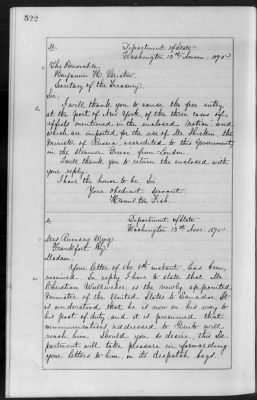 522
Department of State
Washington 13th Novem. 1875
The Honorable
Benjamin H. Bristow,
Secretary of the Treasury.
Sir:
I will thank you to cause the free entry
at the port of New York of the three cases of
effects mentioned in the enclosed notice and
which are imported for the use of Mr. Shishkin, the
Minister of Russia, accredited to this Government,
in the Steamer from London.
I will thank you to return the enclosed with
your reply.
I have the honor to be Sir
Your obedient servant
Hamilton Fish
Department of State
Washington, 13th Nov. 1875
Mrs Rumsey Wing,
Frankfort Ky.
Madam:
Your letter of the 6th instant has been
received. In reply I have to state that Mr.
Christian Wullweber is the newly appointed
Minister of the United States to Ecuador. It
is understood that he is now on his way to
his post of duty and it is presumed that
communications addressed to Quito will
reach him. Should you so desire, this De-
partment will take pleasure in forwarding
your letters to him, in its despatch bags